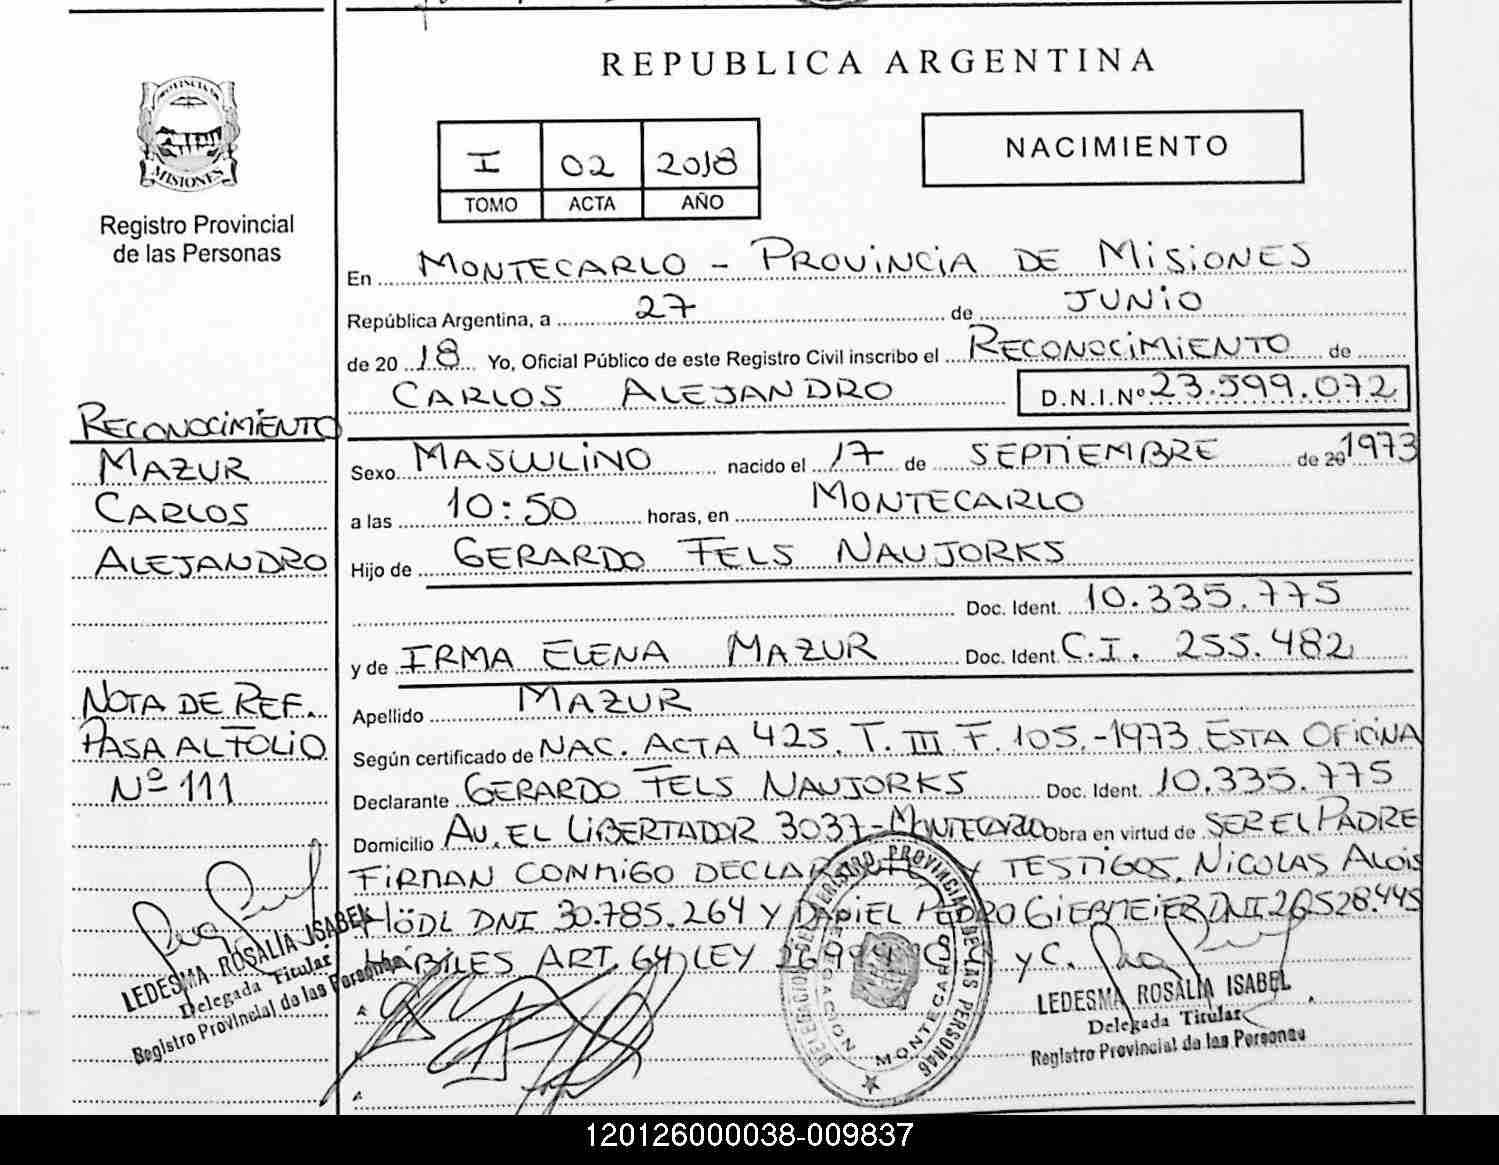 REPUBLICA ARGENTINA
PROVINCIA DE
MISIONES
Registro Provincial
de las Personas
NACIMIENTO
I 02 2018
TOMO ACTA AÑO
En MONTECARLO - PROVINCIA DE MISIONES
República Argentina, a 27 de JUNIO
de 20 18 Yo, Oficial Público de este Registro Civil inscribo el RECONOCIMIENTO de
CARLOS ALEJANDRO D.N.I.Nº 23.599.072
RECONOCIMIENTO
MAZUR
CARLOS
ALEJANDRO
Sexo MASCULINO nacido el 17 de SEPTIEMBRE de 20 1973
a las 10:50 horas, en MONTECARLO
Hijo de GERARDO FELS NAUJORKS
Doc. Ident. 10.335.775
y de IRMA ELENA MAZUR Doc. Ident. C.I. 255.482
Apellido MAZUR
Según certificado de NAC. ACTA 425. T. III F. 105.-1973 ESTA OFICINA
Declarante GERARDO FELS NAUJORKS Doc. Ident. 10.335.775
Domicilio AV. EL LIBERTADOR 3037-MONTECARLO Obra en virtud de SER EL PADRE
FIRMAN CONMIGO DECLARANTE Y TESTIGOS, NICOLAS ALOIS
HÖDL DNI 30.785.264 Y DANIEL PEDRO GIERMEIER DNI 20.528.445
HÁBILES ART. 64 LEY 26994 C. y C.
NOTA DE REF.
PASA AL FOLIO
Nº 111
LEDESMA ROSALIA ISABEL
Delegada Titular
Registro Provincial de las Personas
DELEGACIÓN DEL REGISTRO PROVINCIAL DE LAS PERSONAS
MONTECARLO
LEDESMA ROSALIA ISABEL
Delegada Titular
Registro Provincial de las Personas
120126000038-009837